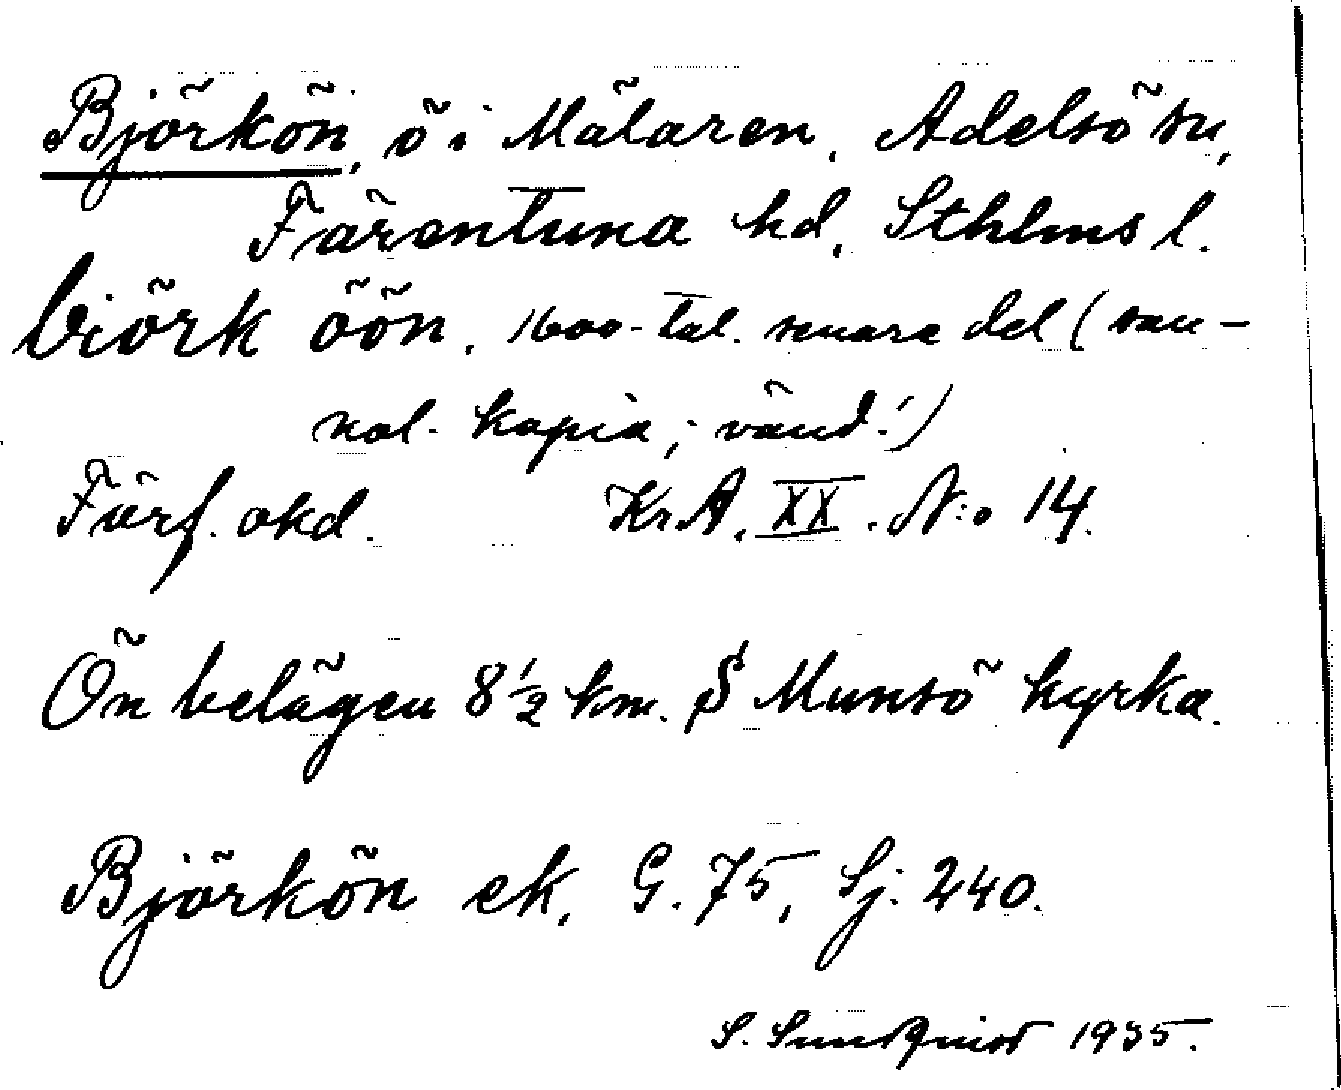 Björkön, ö i Mälaren, Adelsö sn,
Färentuna hd, Sthlms l.
biörk öön. 1600-tal. senare del (san-
nol. kopia; vänd!)
Förf. okd. Kr.A. XX. N:o 14.
Ön belägen 8 1/2 km. S Munsö kyrka.
Björkön ek. G. 75, Sj. 240.
S. Sundquist 1935.